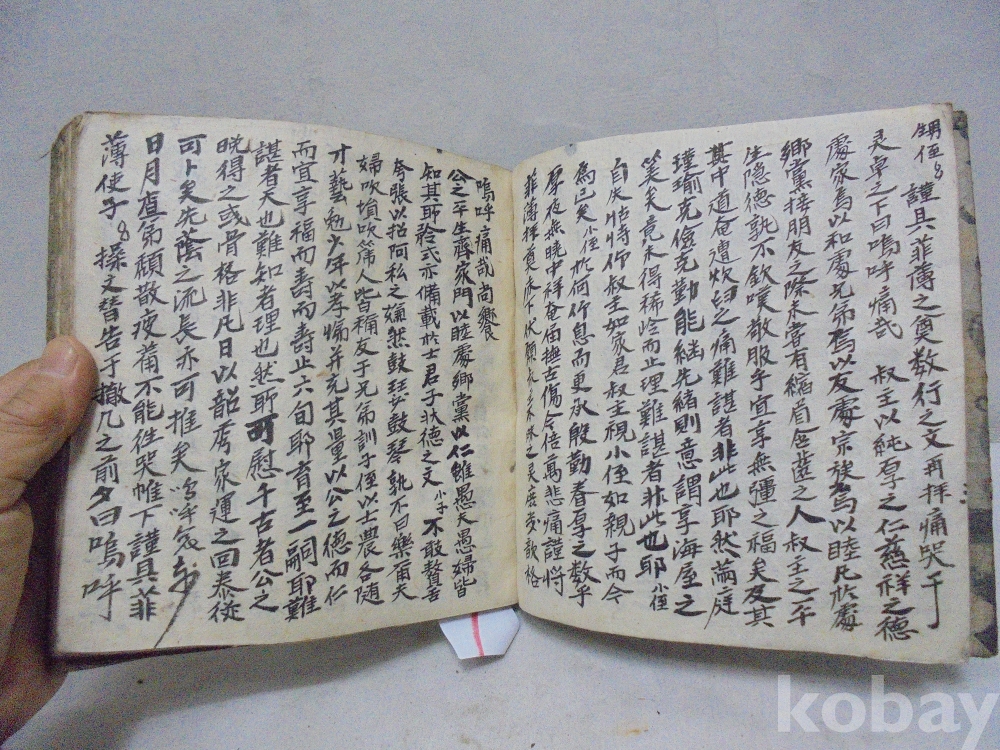 甥侄〻 謹具菲薄之奠数行之文再拜痛哭于
灵卓之下曰嗚呼痛哉 叔主以純厚之仁慈祥之德
處家焉以和處兄弟焉以友處宗族焉以睦凡於處
鄉黨接朋友之際未嘗有縮眉之人叔主之平
生隱德孰不欽嘆敬服乎宜享無疆之福矣及其
其中道奄遭炊臼之痛難諶者非此也耶然滿庭
璞瑜克儉克勤能継先緒則意謂享海屋之
筭矣竟未得稀岭而止理難諶者非此也耶 小侄
自失怙恃仰叔主如家君叔主視小侄如親子而今
為已矣小侄於何仰息而更承殷勤眷厚之教乎
厚夜無曉中祥奄届撫古傷今倍萬悲痛謹將
菲薄 奠 伏願 之灵庶或歆格
嗚呼痛哉尚饗
公之平生齊家門以睦處鄉黨以仁雖愚夫愚婦皆
知其矜式亦備載於士君子狀德之文 小子 不敢贅舌
夸張以招阿私之 然鼓 鼓琴孰不曰樂甭夫
婦吹塤吹篪人皆稱友于兄弟訓子侄以士農各随
才藝勉少年以孝悌并充其量以公之德而仁
而宜享福而壽而壽止六旬耶育至一嗣耶難
諶者天也難知者理也然所可慰千古者公之
晩得之或骨格非凡日以韶秀家運之回泰従
可卜矣先蔭之流長亦可推矣嗚呼哀哉
日月 茀頹散疲 不能徃哭帷下謹具菲
薄使子〻操文替告于撤几之前夕曰嗚呼
kobay